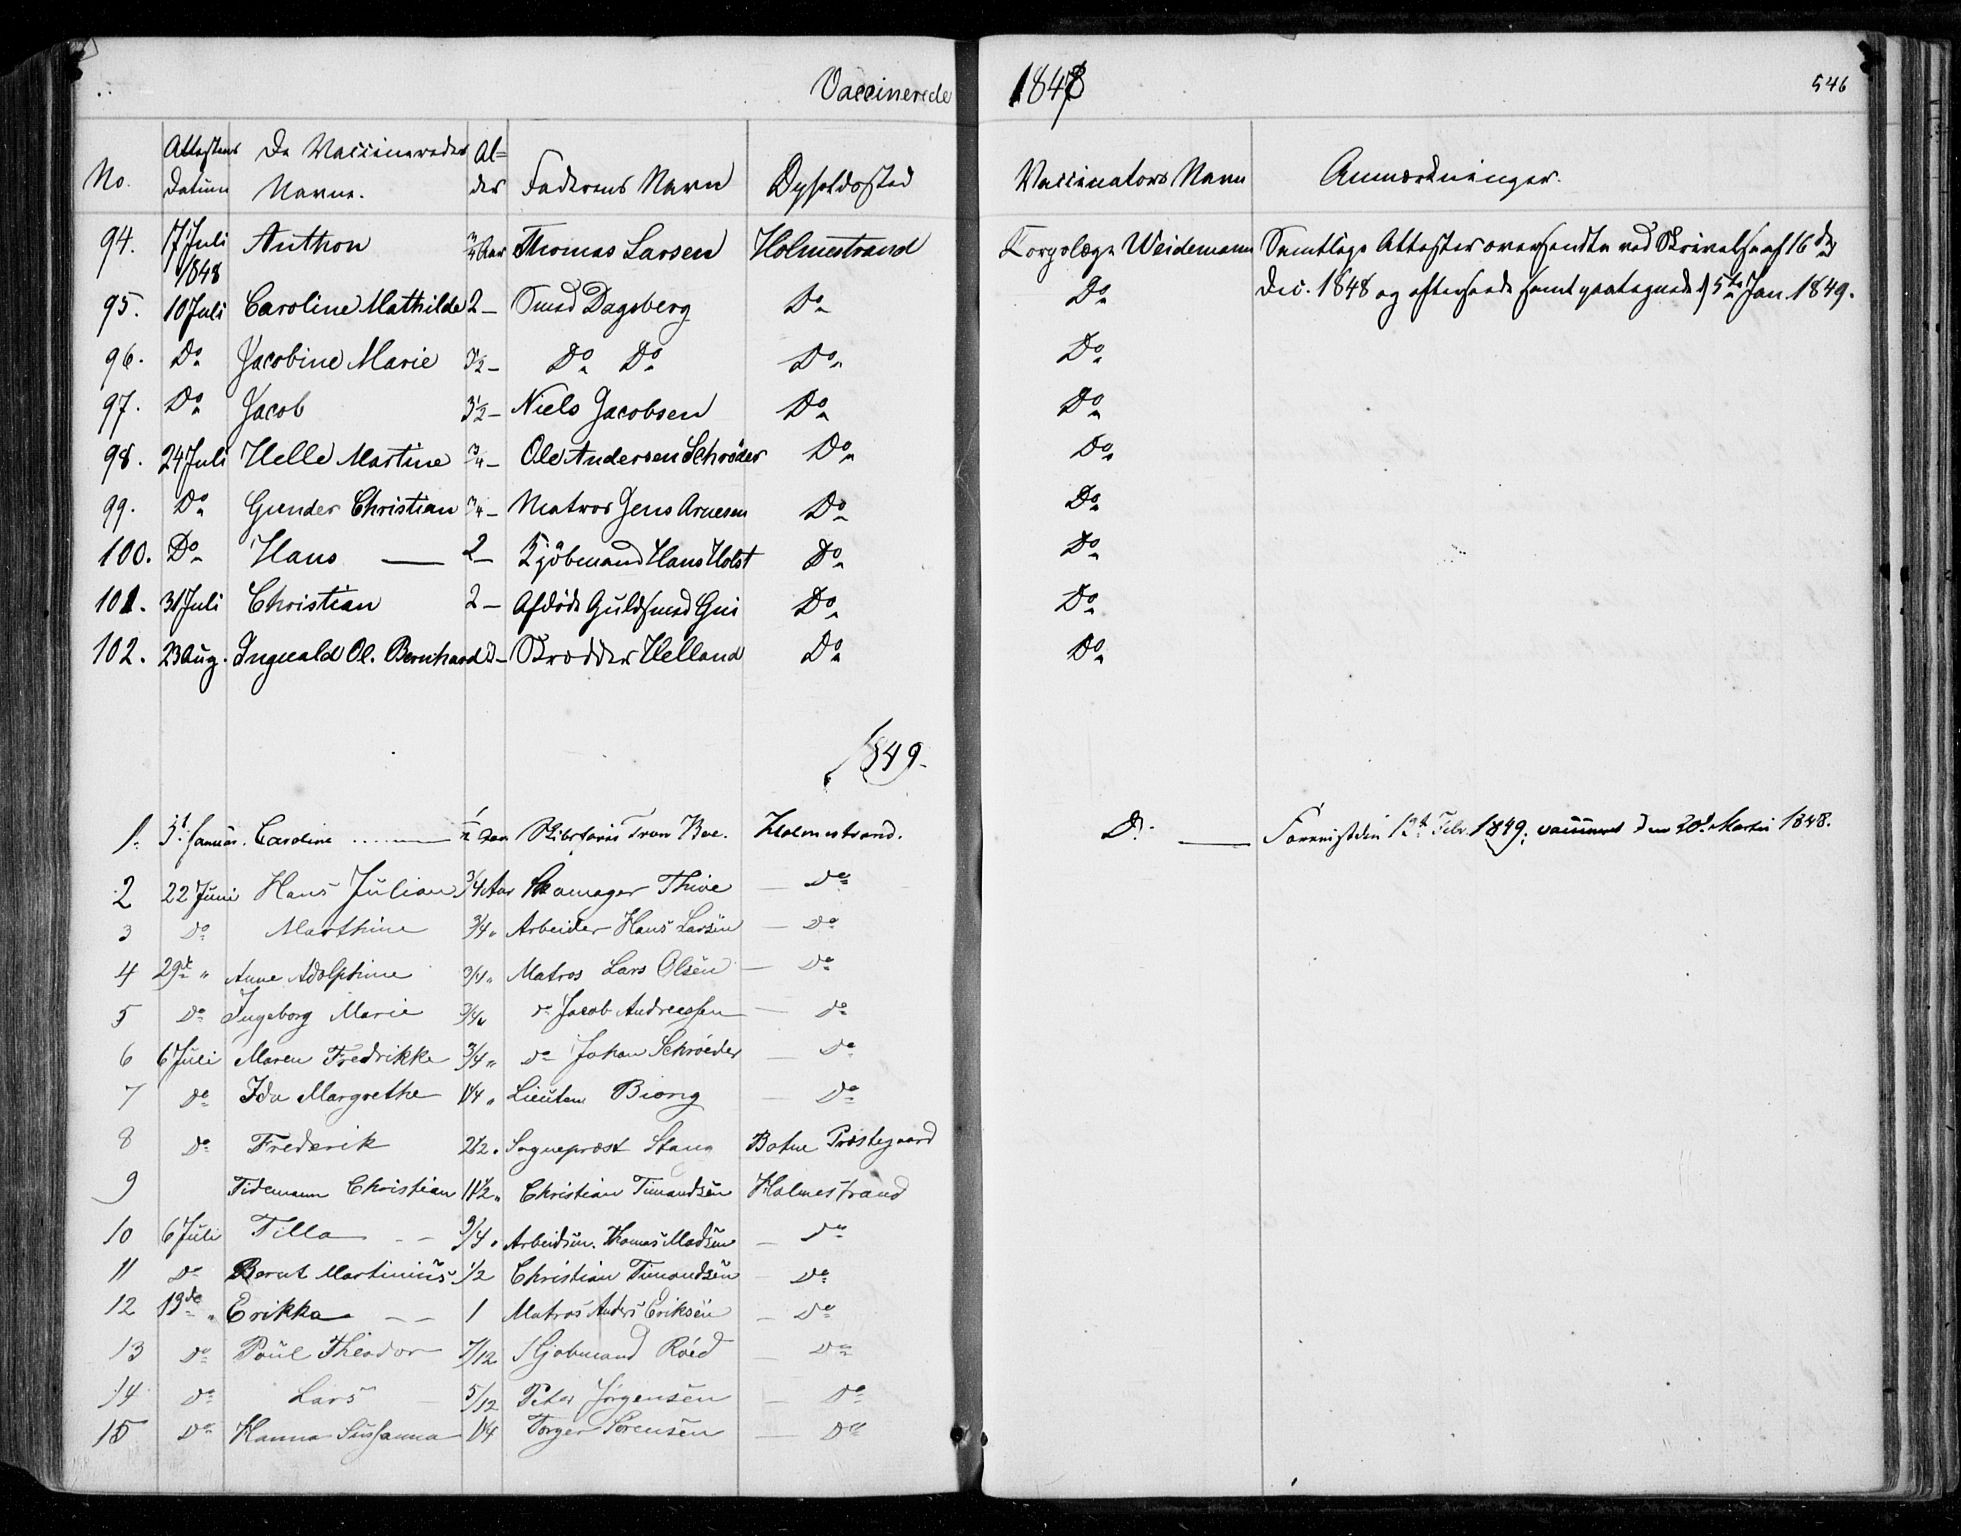 Vaccinerede 1848
546
No. Attestens Datum De Vaccineredes Navne. Alder Faderens Navn Opholdssted Vaccinators Navn Anmærkninger.
94. 17 Juli 1848 Anthon 3/4 Aar Thomas Larsen Holmestrand Corpslæge Weidemann Samtlige Attester oversendte ved Skrivelse af 16de
95. 10 Juli Caroline Mathilde 2 – Smed Dagsberg Do Do Dec. 1848 og efterseede samt paategnede 5te Jan. 1849.
96. Do Jacobine Marie 1/2 – Do Do Do Do
97. Do Jacob 3 1/2 – Niels Jacobsen Do Do
98. 24 Juli Helle Martine 3/4 – Ole Andersen Schrøder Do Do
99. Do Gunder Christian 3/4 – Matros Jens Arnesen Do Do
100. Do Hans — 2 – Kjöbmand Hans Holst Do Do
101. 31 Juli Christian 2 – Afdöde Guldsmed Gui Do Do
102. 23 Aug. Ingvald Ol. Bernhard – Skrædder Helland Do Do
1849.
1. Januar. Caroline ...... Tron Boe. Holmestrand. Do — Forevist den 12t Febr. 1849. vaccineret den 20d Martii 1848.
2 22 Juni Hans Julian 3/4 Aar Skomager Thive — Do
3 Do Marthine 3/4 " Arbeider Hans Larsen — Do
4 29de " Anne Adolphine 3/4 " Matros Lars Olsen — Do
5 Do Ingeborg Marie 3/4 " do Jacob Andreassen — do
6 6 Juli Maren Fredrikke 3/4 " do Johan Schrøeder — Do
7 do Ida Margrethe 1 1/4 " Lieuten Biong — Do
8 do Frederik 2 1/2 " Sogneprost Stang Botne Præstegaard
9 Tidemann Christian 1 1/2 " Christian Timandsen Holmestrand
10 6 Juli Tilla — 9/4 " Arbeidsm. Thomas Madsen — Do
11 Do Bernt Martinius 1/2 Christian Timandsen — Do
12 13de " Erikka — 1 Matros Anders Eriksen — Do
13 Do Poul Theodor 7/12 Kjøbmand Røed — Do
14 Do Lars — 5/12 Peter Jørgensen — Do
15 Do Hanna Sussanna 1 1/4 Torger Sørensen — Do